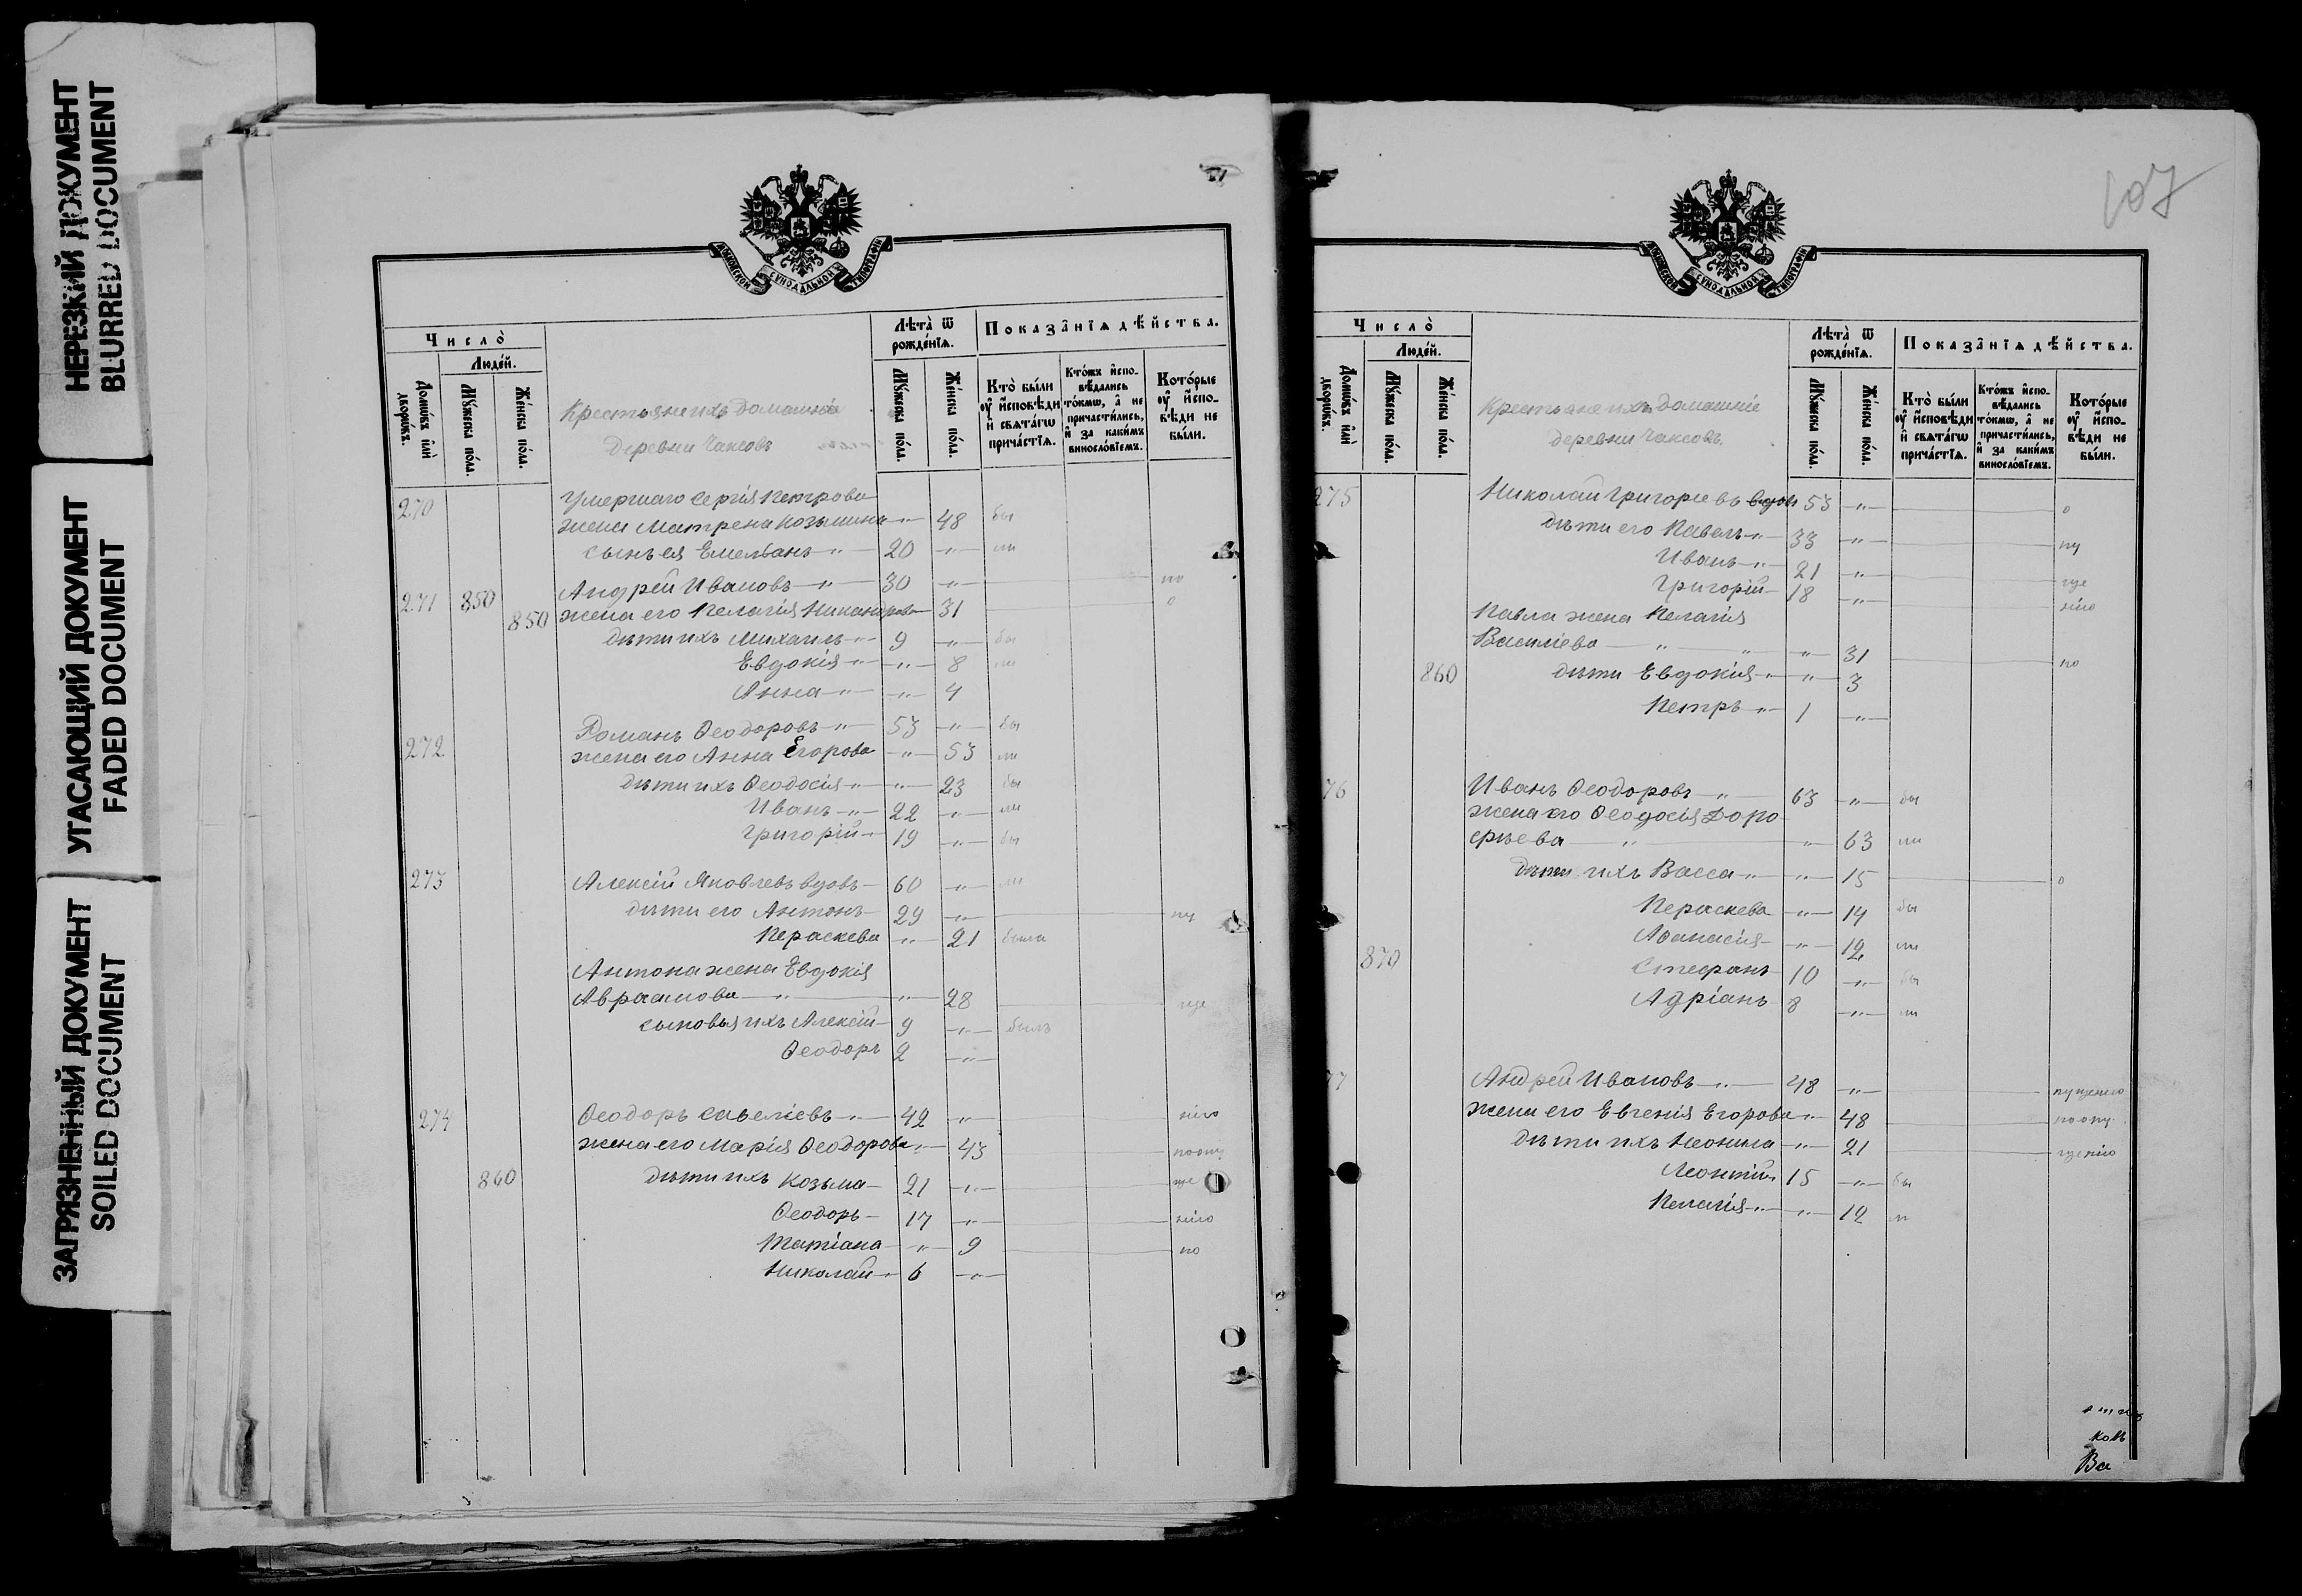 НЕРЕЗКИЙ ДОКУМЕНТ
BLURRED DOCUMENT
УГАСАЮЩИЙ ДОКУМЕНТ
FADED DOCUMENT
ЗАГРЯЗНЕННЫЙ ДОКУМЕНТ
SOILED DOCUMENT
МОСКОВСКОЙ СУНОДАЛЬНОЙ ТИПОГРАФІИ
Число̀
Людей.
Домѡвъ или дворѡвъ.
Мꙋжеска пола.
Женска пола.
Крестьяне ихъ домашніе
деревни Чаксовъ
Лѣта̀ ѿ рожденїѧ.
Мꙋжеска пола.
Женска пола.
Показанїѧ дѣйства.
Кто̀ были оу҆ исповѣди и свѧтагѡ причастїѧ.
Ктожъ исповѣдались токмѡ, а не причастились, и за какимъ винословїемъ.
Которые оу҆ исповѣди не были.
270 Умершаго Сергія Петрова
жена Матрена Козьмина " 48 бы
сынъ ея Емельянъ " 20 " ли
271 850 Андрей Ивановъ " 30 " по
850 жена его Пелагія Никандрова 31 о
дѣти ихъ Михаилъ " 9 " бы
Евдокія " " 8 ли
Анна " " 4
272 Романъ Ѳеодоровъ " 53 " бы
жена его Анна Егорова " 53 ли
дѣти ихъ Ѳеодосія " " 23 бы
Иванъ " 22 " ли
Григорій " 19 " бы
273 Алексій Яковлевъ вдовъ 60 " ли
дѣти его Антонъ 29 " пу
Параскева " 21 была
Антона жена Евдокія
Авраамова " " 28 ще
сыновья ихъ Алексій 9 " былъ
Ѳеодоръ 2 "
274 Ѳеодоръ Савеліевъ " 42 " нію
жена его Марія Ѳеодорова " 43 поопу
860 дѣти ихъ Козьма 21 " ще
Ѳеодоръ 17 " нію
Татіана " 9 по
Николай " 6 "
107
МОСКОВСКОЙ СУНОДАЛЬНОЙ ТИПОГРАФІИ
Число̀
Людей.
Домѡвъ или дворѡвъ.
Мꙋжеска пола.
Женска пола.
Крестьяне ихъ домашніе
деревни Чаксовъ.
Лѣта̀ ѿ рожденїѧ.
Мꙋжеска пола.
Женска пола.
Показанїѧ дѣйства.
Кто̀ были оу҆ исповѣди и свѧтагѡ причастїѧ.
Ктожъ исповѣдались токмѡ, а не причастились, и за какимъ винословїемъ.
Которые оу҆ исповѣди не были.
275 Николай Григорьевъ вдовъ 53 " о
дѣти его Павелъ " 33 " пу
Иванъ " 21 " ще
Григорій 18 " нію
Павла жена Пелагія
Василіева " " " 31 по
860 дѣти Евдокія " " 3
Петръ " 1 "
76 Иванъ Ѳеодоровъ " 63 " бы
жена его Ѳеодосія Доро
фѣева " " 63 ли
дѣти ихъ Васса " " 15 о
Параскева " 14 бы
Аѳанасія " 12 ли
870 Стефанъ 10 " бы
Адріанъ 8 " ли
77 Андрей Ивановъ " 48 " пущенію
жена его Евгенія Егорова " 48 поопу
дѣти ихъ Неонила " 21 щенію
Леонтій 15 " бы
Пелагія " " 12 л
Ва